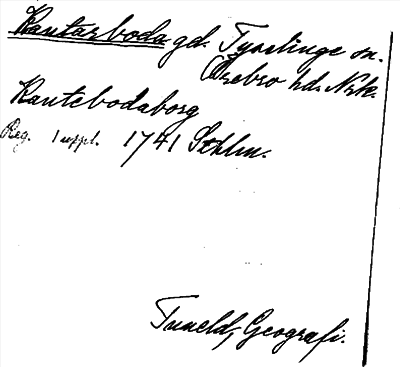 Kantarboda gd. Tysslinge sn.
Örebro hd. Nrk.
Kantebodaborg
Reg. 1 uppl. 1741 Sthlm.
Tuneld, Geografi.